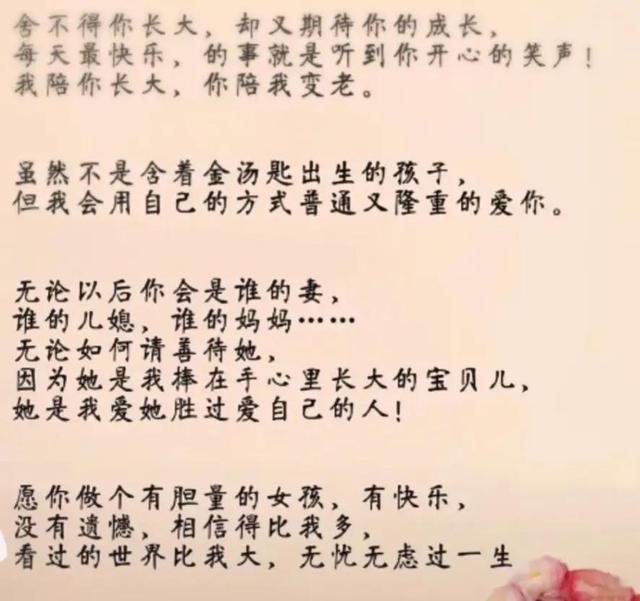 舍不得你长大，却又期待你的成长，
每天最快乐，的事就是听到你开心的笑声！
我陪你长大，你陪我变老。
虽然不是含着金汤匙出生的孩子，
但我会用自己的方式普通又隆重的爱你。
无论以后你会是谁的妻，
谁的儿媳，谁的妈妈……
无论如何请善待她，
因为她是我捧在手心里长大的宝贝儿，
她是我爱她胜过爱自己的人！
愿你做个有胆量的女孩，有快乐，
没有遗憾，相信得比我多，
看过的世界比我大，无忧无虑过一生